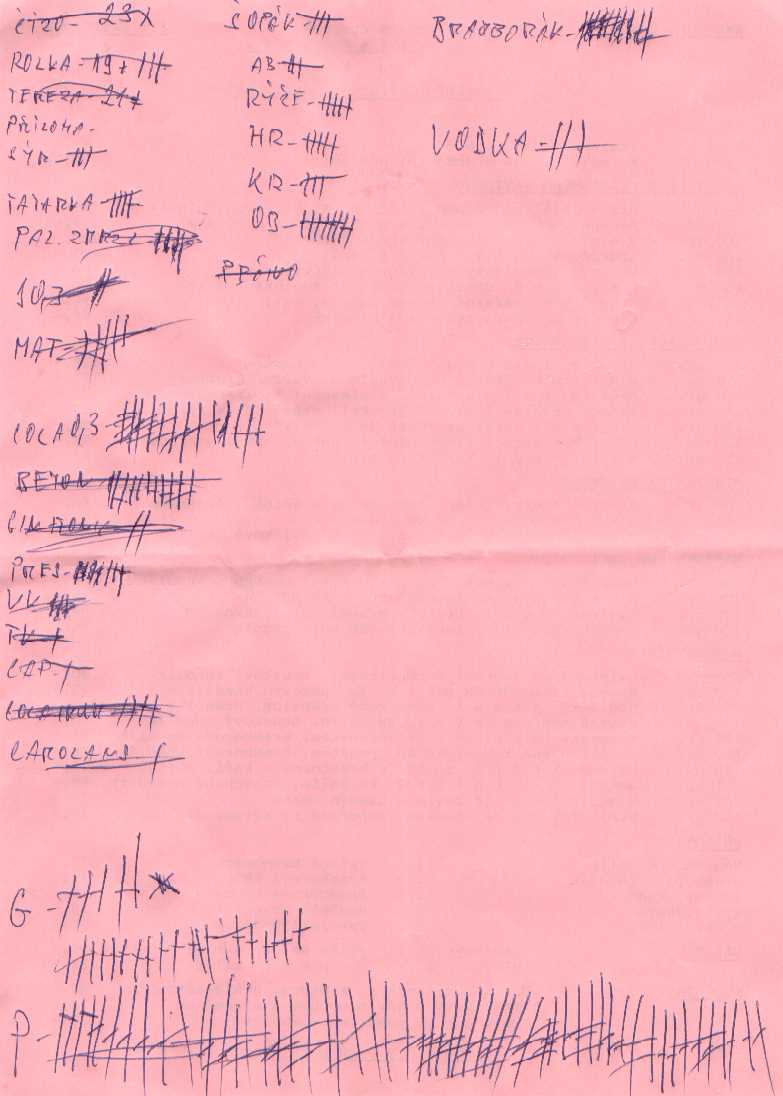 ČÍZO - 23x
ROLKA - 19+
TEREZA - 21x
PŘÍLOHA -
SÝR -
TATARKA -
PAL.
MAT -
COCA 0,3 -
BETON
GIN TONIC
PRES -
VK
CAP -
CAROLANS
G -
P -
ŠOPÁK -
AB -
RÝŽE -
HR -
KR -
OB -
BRAMBORÁK -
VODKA -